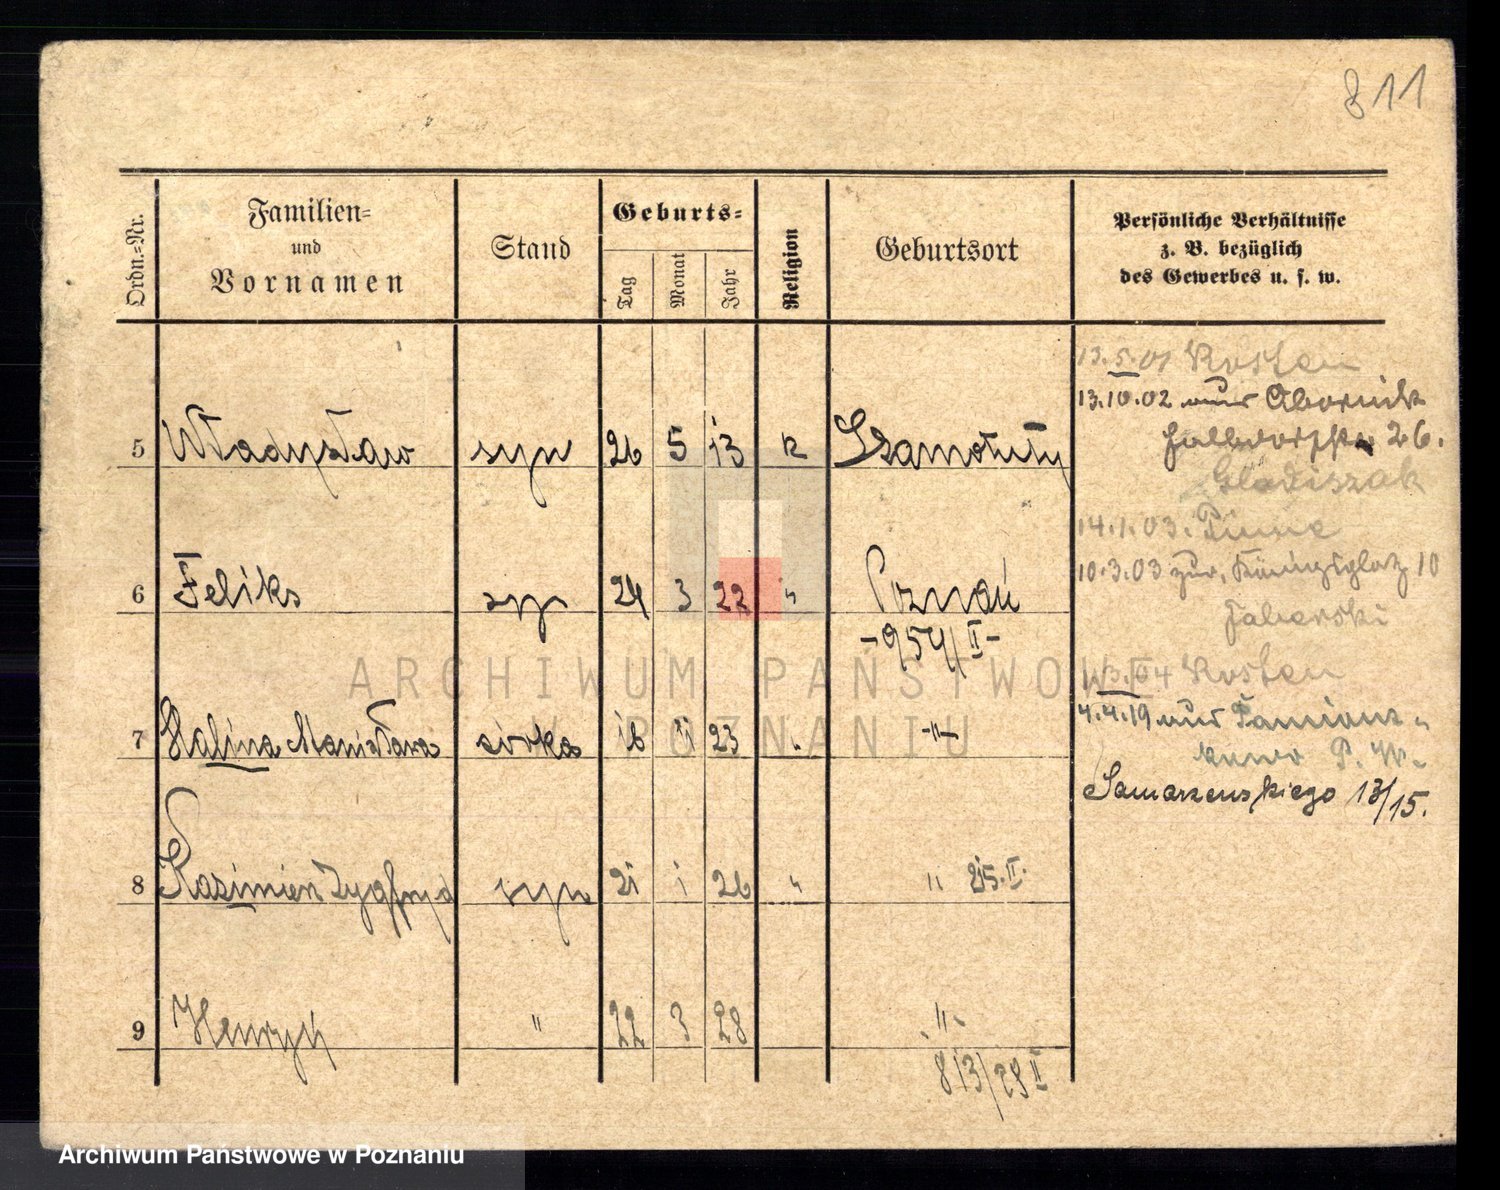 811
Ordn.-Nr.
Familien-
und
Vornamen
Stand
Geburts-
Tag
Monat
Jahr
Religion
Geburtsort
Persönliche Verhältnisse
z. B. bezüglich
des Gewerbes u. s. w.
13.5.01 Kosten
13.10.02 aus Obornik
26.
Gladiszak
14.1.03. Pinne
10.3.03 zur. Königsplatz 10
Faberski
Kosten
4.4.19 aus
kowo P. W.
13/15.
5 Władysław syn 26 5 13 k Szamotuły
6 Feliks syn 24 3 22 " Poznań
-954/II-
7 Halina Stanisława córka 16 11 23 " -"-
8 Kazimierz Zygfryd syn 21 1 26 " " 215.II.
9 Henryk " 22 3 28 -"-
813/28 II
ARCHIWUM PAŃSTWOWE
W POZNANIU
Archiwum Państwowe w Poznaniu